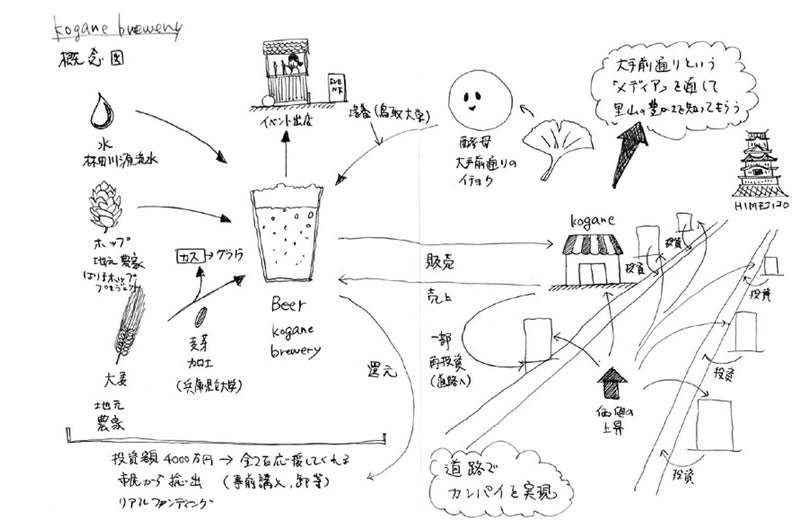 kogane brewery
概念図
水
林田川源流水
ホップ
地元農家
はりまホップ
プロジェクト
大麦
地元
農家
カス→グラノラ
麦芽
加工
(兵庫県立大学)
イベント出店
培養(鳥取大学)
酵母
大手前通りの
イチョウ
Beer
kogane
brewery
販売
売上
還元
一部
再投資
(道路へ)
kogane
大手前通りという
「メディア」を通して
里山の豊かさを知ってもらう
HIMEJIJO
投資
投資
投資
投資
投資
価値の
上昇
道路で
カンパイを実現
投資額4000万円→全てを応援してくれる
市民から捻出 (事前購入,卸等)
リアルファンディング